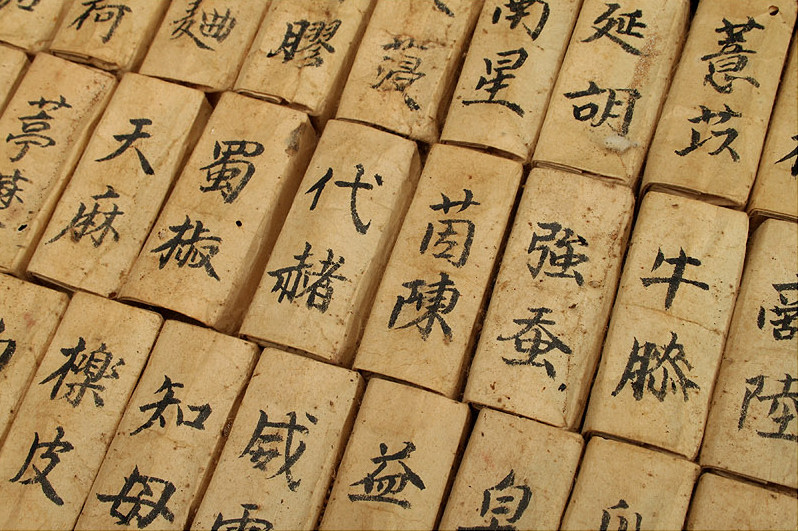 荷
膠
南星
延胡
薏苡
葶
天麻
蜀椒
代赭
茵陳
強蚕
牛膝
商陸
櫟皮
知母
威
益